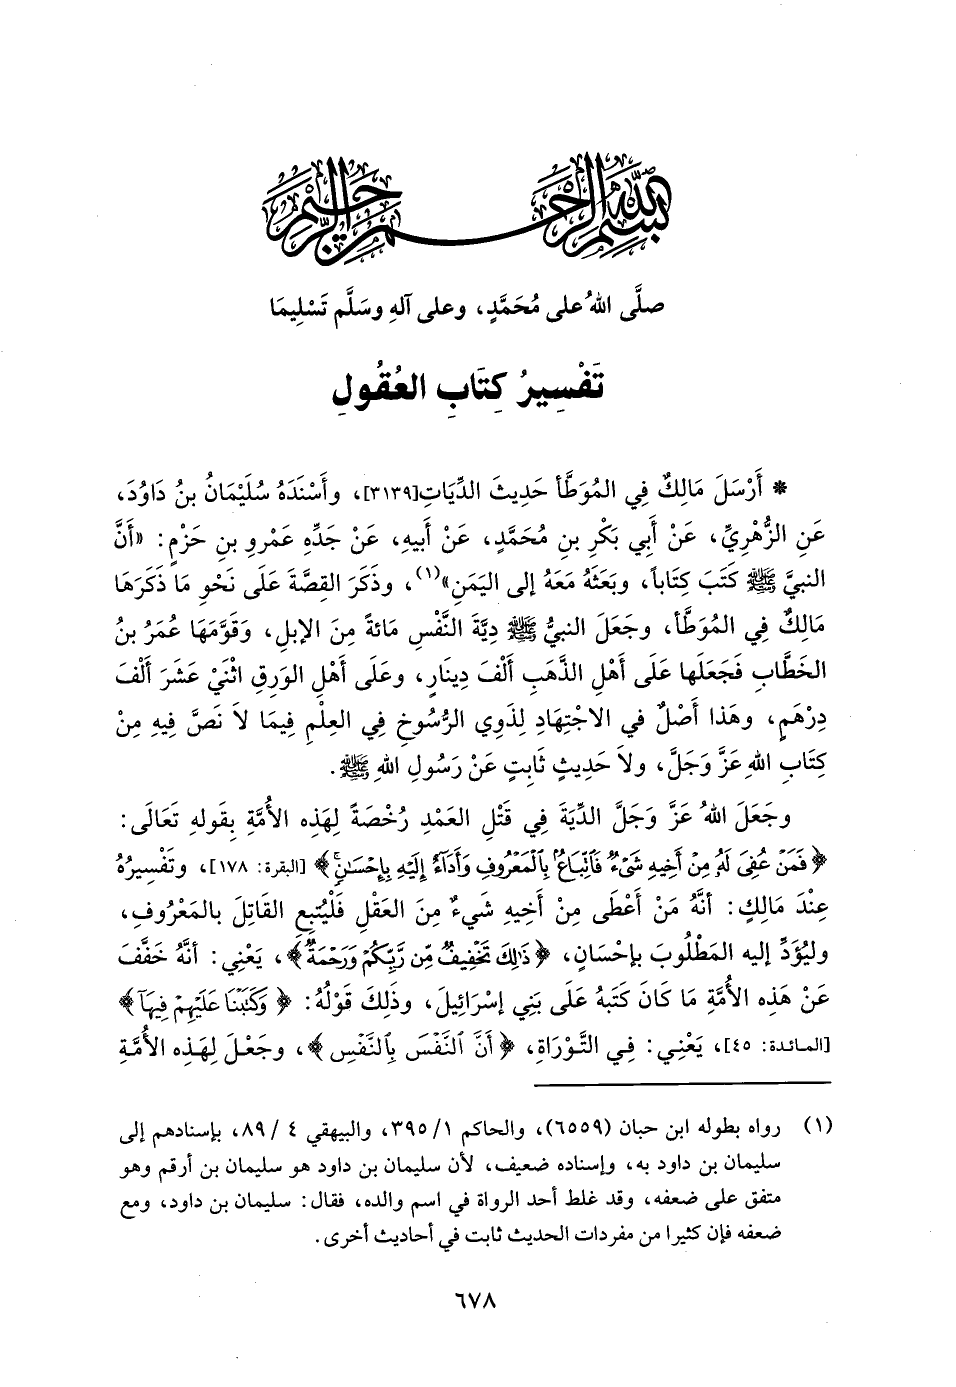 بسم الله الرحمن الرحيم
صلَّى اللهُ على مُحَمَّدٍ، وعلى آلهِ وسَلَّم تَسْلِيمَا
تَفْسِيرُ كِتَابِ العُقُولِ
* أَرْسَلَ مَالِكٌ فِي المُوَطَّأ حَدِيثَ الدِّيَاتِ[٣١٣٩]، وأَسْنَدَهُ سُلَيْمَانُ بنُ دَاوُدَ،
عَنِ الزُّهْرِيِّ، عَنْ أَبِي بَكْرِ بنِ مُحَمَّدٍ، عَنْ أَبيهِ، عَنْ جَدِّهِ عَمْرِو بنِ حَزْمٍ: «أَنَّ
النبيَّ ﷺ كَتَبَ كِتَاباً، وبَعَثَهُ مَعَهُ إلى اليَمَنِ»(١)، وذَكَرَ القِصَّةَ عَلَى نَحْوِ مَا ذَكَرَهَا
مَالِكٌ فِي المُوَطَّأ، وجَعَلَ النبيُّ ﷺ دِيَّةَ النَّفْسِ مَائةً مِنَ الإبلِ، وَقَوَّمَهَا عُمَرُ بنُ
الخَطَّابِ فَجَعَلَها عَلَى أَهْلِ الذَّهَبِ أَلْفَ دِينَارٍ، وعَلَى أَهْلِ الوَرِقِ اثْنَيْ عَشَرَ أَلْفَ
دِرْهَمٍ، وهَذا أَصْلٌ في الاجْتِهَادِ لِذَوِي الرُّسُوخِ فِي العِلْمِ فِيمَا لاَ نَصَّ فِيهِ مِنْ
كِتَابِ اللهِ عَزَّ وَجَلَّ، ولاَ حَدِيثٍ ثَابِتٍ عَنْ رَسُولِ اللهِ ﷺ.
وجَعَلَ اللهُ عَزَّ وَجَلَّ الدِّيَةَ فِي قَتْلِ العَمْدِ رُخْصَةً لِهَذِه الأُمَّةِ بِقَولهِ تَعَالَى:
﴿فَمَنْ عُفِيَ لَهُ مِنْ أَخِيهِ شَيْءٌ فَاتِّبَاعٌ بِالْمَعْرُوفِ وَأَدَاءٌ إِلَيْهِ بِإِحْسَانٍ﴾ [البقرة: ١٧٨]، وتَفْسِيرُهُ
عِنْدَ مَالِكٍ: أنَّهُ مَنْ أَعْطَى مِنْ أَخِيهِ شَيءٌ مِنَ العَقْلِ فَلْيُتبِعِ القَاتِلَ بالمَعْرُوفِ،
وليُؤَدِّ إليه المَطْلُوبَ بإحْسَانٍ، ﴿ذَلِكَ تَخْفِيفٌ مِّن رَّبِّكُمْ وَرَحْمَةٌ﴾، يَعْنِي: أنَّهُ خَفَّفَ
عَنْ هَذِه الأُمَّةِ مَا كَانَ كَتَبَهُ عَلَى بَنِي إسْرَائِيلَ، وذَلِكَ قَوْلُهُ: ﴿وَكَتَبْنَا عَلَيْهِمْ فِيهَا﴾
[المائدة: ٤٥]، يَعْنِي: فِي التَّوْرَاةِ، ﴿أَنَّ النَّفْسَ بِالنَّفْسِ﴾، وجَعْلَ لِهَذِه الأُمَّةِ
(١) رواه بطوله ابن حبان (٦٥٥٩)، والحاكم ٣٩٥/١، والبيهقي ٤ /٨٩، بإسنادهم إلى
سليمان بن داود به، وإسناده ضعيف، لأن سليمان بن داود هو سليمان بن أرقم وهو
متفق على ضعفه، وقد غلط أحد الرواة في اسم والده، فقال: سليمان بن داود، ومع
ضعفه فإن كثيرا من مفردات الحديث ثابت في أحاديث أخرى.
٦٧٨